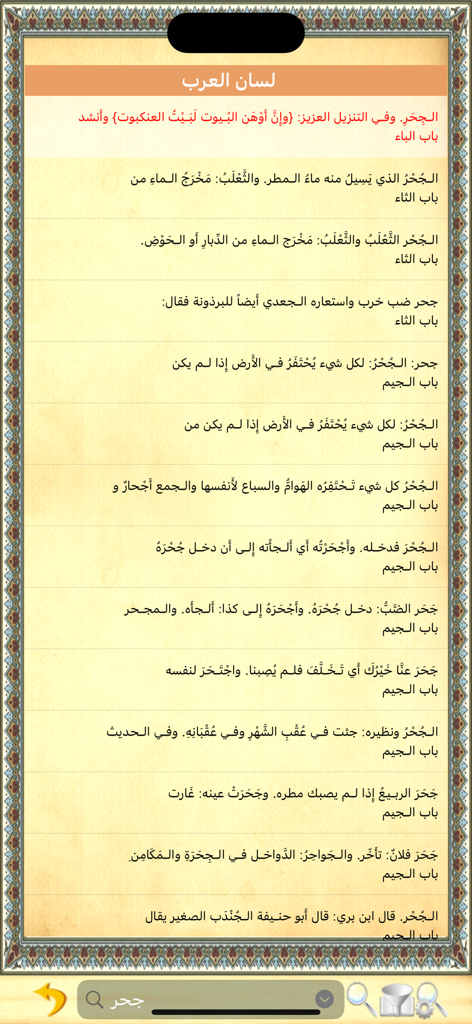 لسان العرب
الـجِحَرِ. وفـي التنزيل العزيز: {وإِنَّ أَوْهَن البُـيوت لَبَـيْتُ العنكبوت} وأَنشد
باب الباء
الـجُحْرُ الذي يَسِيلُ منه ماءُ الـمطر. والثَّعْلَبُ: مَخْرَجُ الـماءِ من
باب الثاء
الـجُحْر الثَّعْلَبُ والثَّعْلَبُ: مَخْرَج الـماءِ من الدِّبارِ أَو الـحَوْضِ.
باب الثاء
جحر ضب خرب واستعاره الـجعدي أَيضاً للبرذونة فقال:
باب الثاء
جحر: الـجُحْرُ: لكل شيء يُحْتَفَرُ فـي الأَرض إِذا لـم يكن
باب الـجيم
الـجُحْرُ: لكل شيء يُحْتَفَرُ فـي الأَرض إِذا لـم يكن من
باب الـجيم
الـجُحْرُ كل شيء تَـحْتَفِرُه الهَوامُّ والسباع لأَنفسها والـجمع أَجْحارٌ و
باب الـجيم
الـجُحْرَ فدخـله. وأَجْحَرْتُه أَي أَلـجأْته إِلـى أَن دخـل جُحْرَهُ
باب الـجيم
جَحَر الضَّبُّ: دخـل جُحْرَهُ. وأَجْحَرَهُ إِلـى كذا: أَلـجأَه. والـمجـحر
باب الـجيم
جَحَرَ عنَّا خَيْرُكَ أَي تَـخَـلَّفَ فلـم يُصِبنا. واجْتَـحَرَ لنفسه
باب الـجيم
الـجُحْرُ ونظيره: جئت فـي عُقْبِ الشَّهْرِ وفـي عُقْبَانِهِ. وفـي الـحديث
باب الـجيم
جَحَرَ الربـيعُ إِذا لـم يصبك مطره. وجَحَرَتْ عينه: غَارت
باب الـجيم
جَحَرَ فلانٌ: تأَخَّر. والـجَواحِرُ: الدَّواخـل فـي الـجِحَرَةِ والـمَكَامِنِ.
باب الـجيم
الـجُحْر. قال ابن بري: قال أَبو حنـيفة الـجُنْدَب الصغير يقال
باب الـجيم
جحر